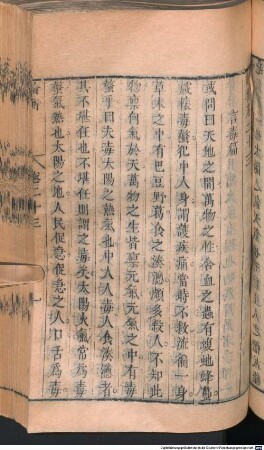 言毒篇
或問曰天地之間萬物之性含血之蟲有蝮蛇蜂蠆
咸懷毒螫犯中人身謂護疾痛當時不救流徧一身
草木之中有巴豆野葛食之湊懣頗多殺人不知此
物稟何氣於天萬物之生皆稟元氣元氣之中有毒
螫乎曰夫毒太陽之熱氣也中人人毒人食湊懣者
其不堪任也不堪任則謂之毒矣太陽火氣常爲毒
螫氣熱也太陽之地人民促急促急之人口舌爲毒
卷二十三